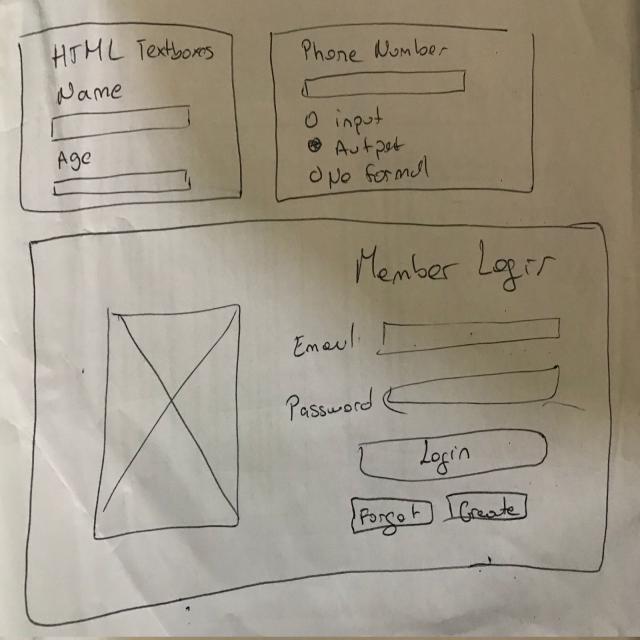 HTML Textboxes
Name
Age
Phone Number
input
Autpet
No formal
Member Login
Email
Password
Login
Forgot
Create